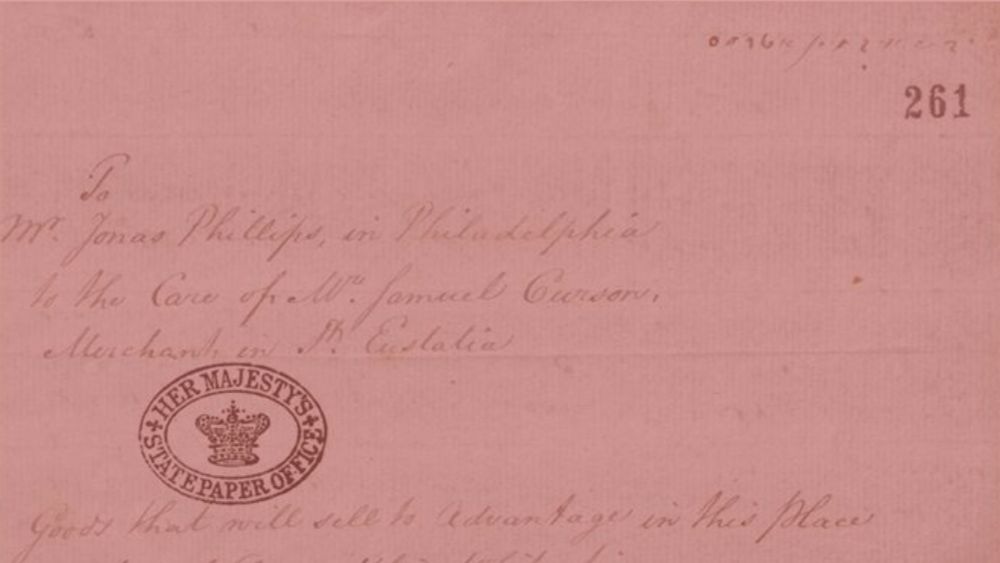 261
To
Mr. Jonas Phillips, in Philadelphia
to the Care of Mr. Samuel Curson,
Merchant in St. Eustatia
HER MAJESTY'S
STATE PAPER OFFICE
Goods that will sell to Advantage in this Place